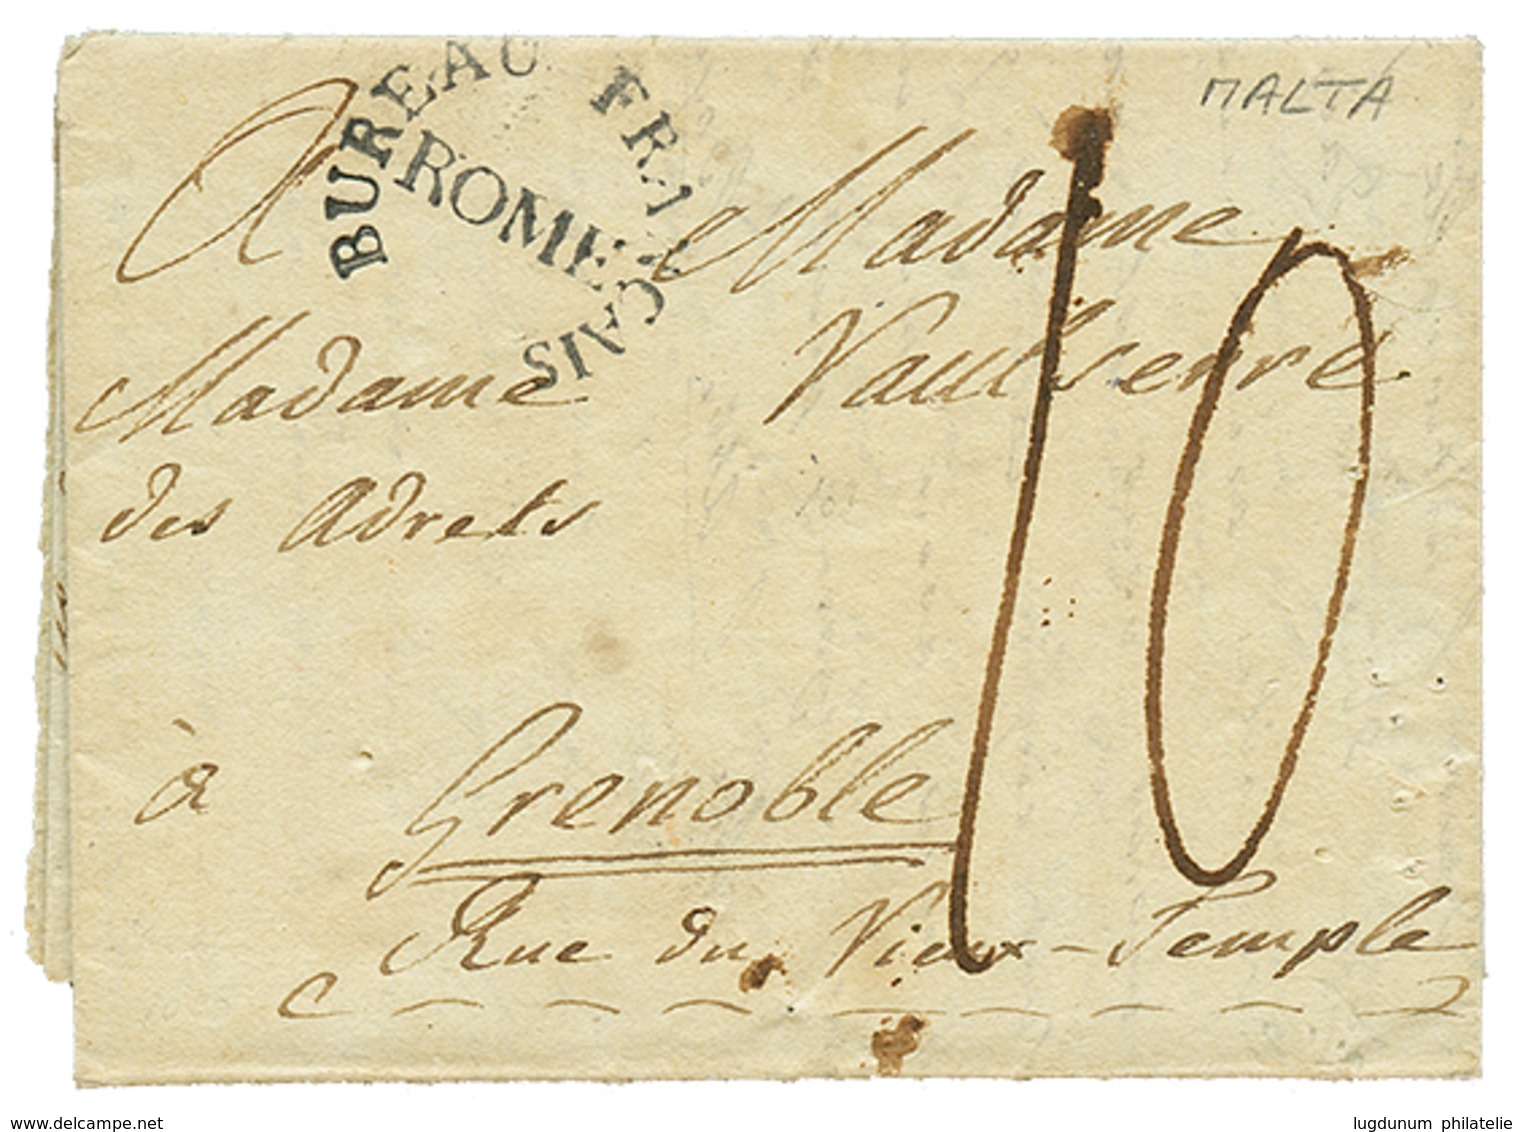 MALTA
BUREAU FRANCAIS
ROME
A Madame
Madame Vaulserre
des Adrets
à Grenoble
Rue du Vieux-Temple
10
delcampe.net
lugdunum philatelie